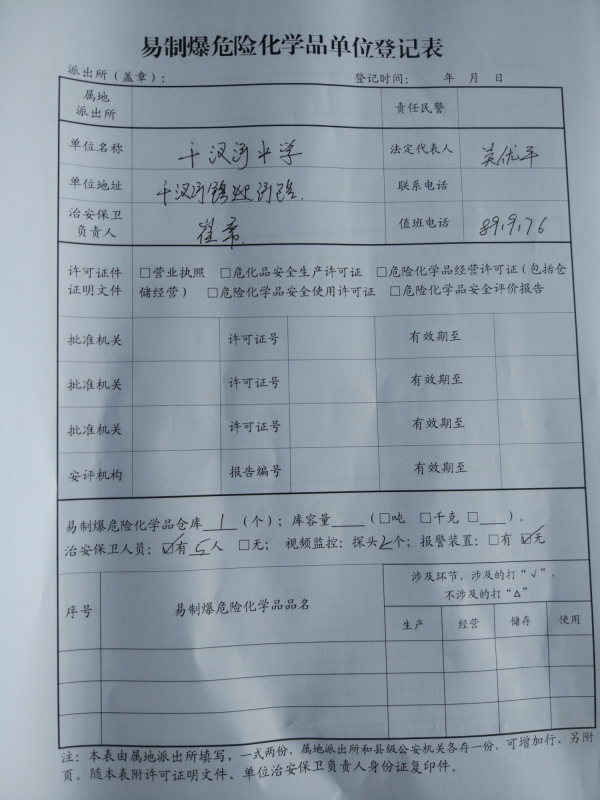 易制爆危险化学品单位登记表
派出所（盖章）： 登记时间： 年 月 日
属地派出所 责任民警
单位名称 十汊河中学 法定代表人 吴优平
单位地址 十汊河 联系电话
治安保卫负责人 崔常 值班电话
许可证件 □营业执照 □危化品安全生产许可证 □危险化学品经营许可证（包括仓
证明文件 储经营） □危险化学品安全使用许可证 □危险化学品安全评价报告
批准机关 许可证号 有效期至
批准机关 许可证号 有效期至
批准机关 许可证号 有效期至
安评机构 报告编号 有效期至
易制爆危险化学品仓库 1 （个）；库容量____（□吨 □千克 □___）。
治安保卫人员：☑有 5 人 □无； 视频监控：探头2个；报警装置：□有 ☑无
序号 易制爆危险化学品品名 涉及环节，涉及的打“√”，
不涉及的打“△”
生产 经营 储存 使用
注：本表由属地派出所填写，一式两份，属地派出所和县级公安机关各存一份，可增加行、另附
页。随本表附许可证明文件、单位治安保卫负责人身份证复印件。